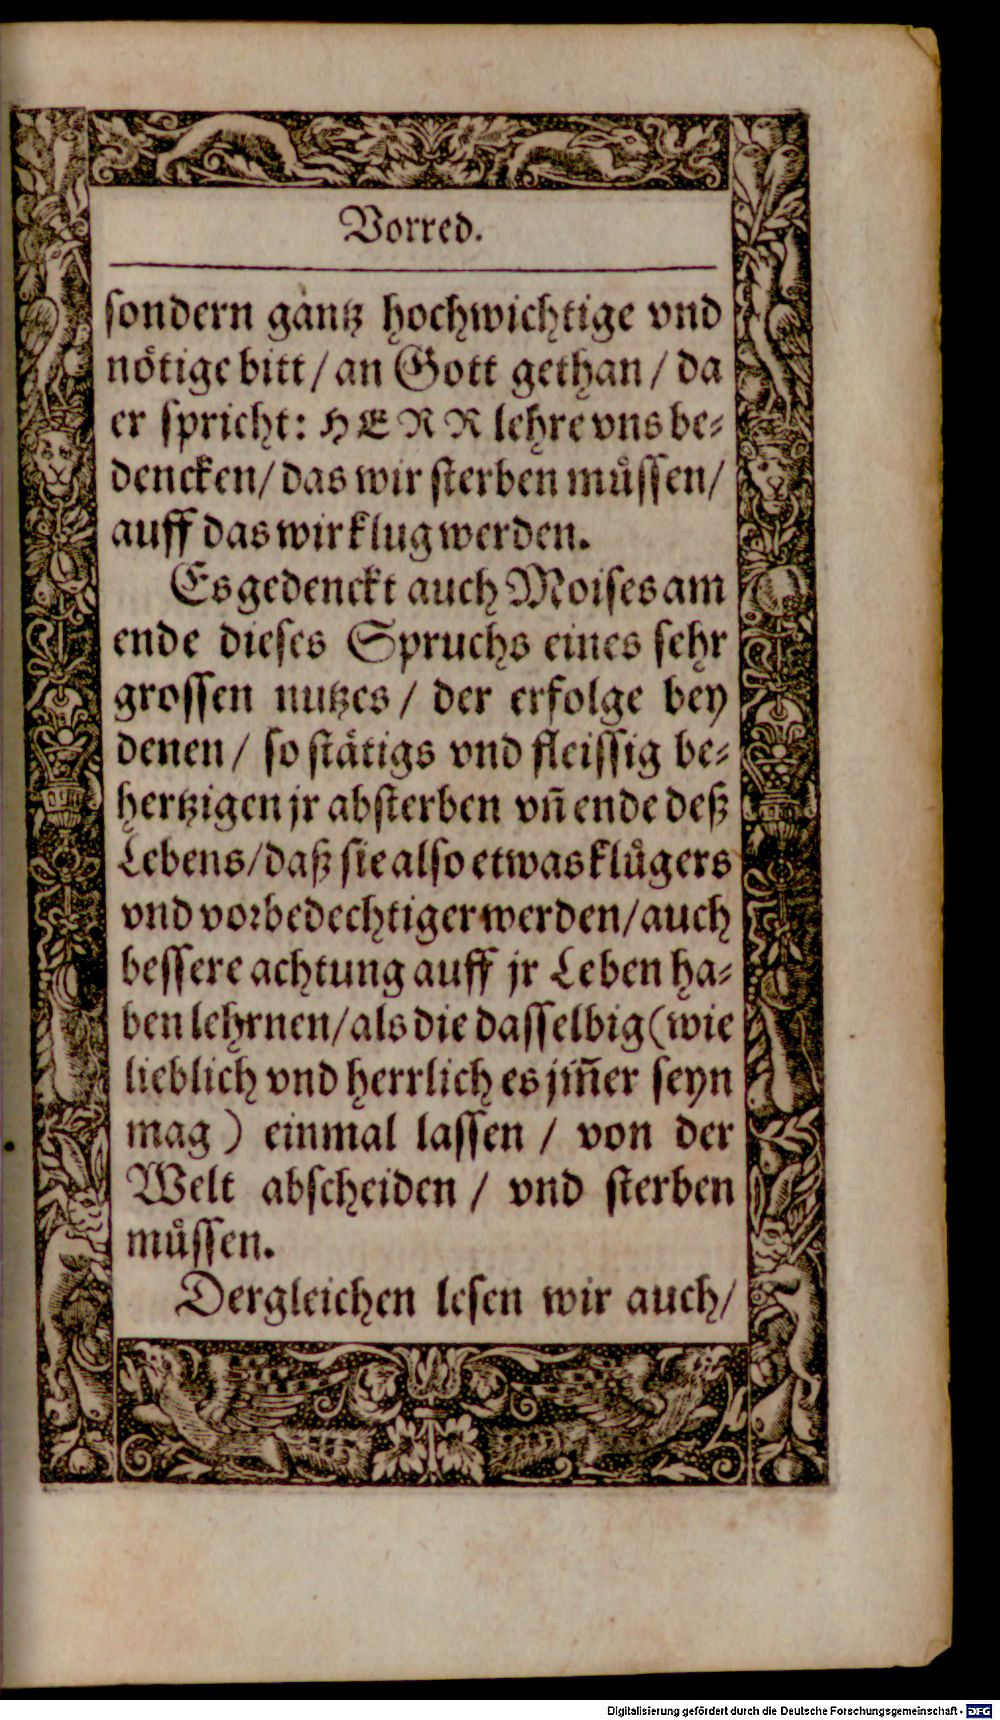 Vorred.
sondern gantz hochwichtige vnd
nötige bitt / an Gott gethan / da
er spricht: HERR lehre vns be-
dencken / das wir sterben müssen /
auff das wir klug werden.
Es gedenckt auch Moises am
ende dieses Spruchs eines sehr
grossen nutzes / der erfolge bey
denen / so stätigs vnd fleissig be-
hertzigen jr absterben vñ ende deß
Lebens / daß sie also etwas klügers
vnd vorbedechtiger werden / auch
bessere achtung auff jr Leben ha-
ben lehrnen / als die dasselbig (wie
lieblich vnd herrlich es jm̃er seyn
mag) einmal lassen / von der
Welt abscheiden / vnd sterben
müssen.
Dergleichen lesen wir auch /
Digitalisierung gefördert durch die Deutsche Forschungsgemeinschaft - DFG